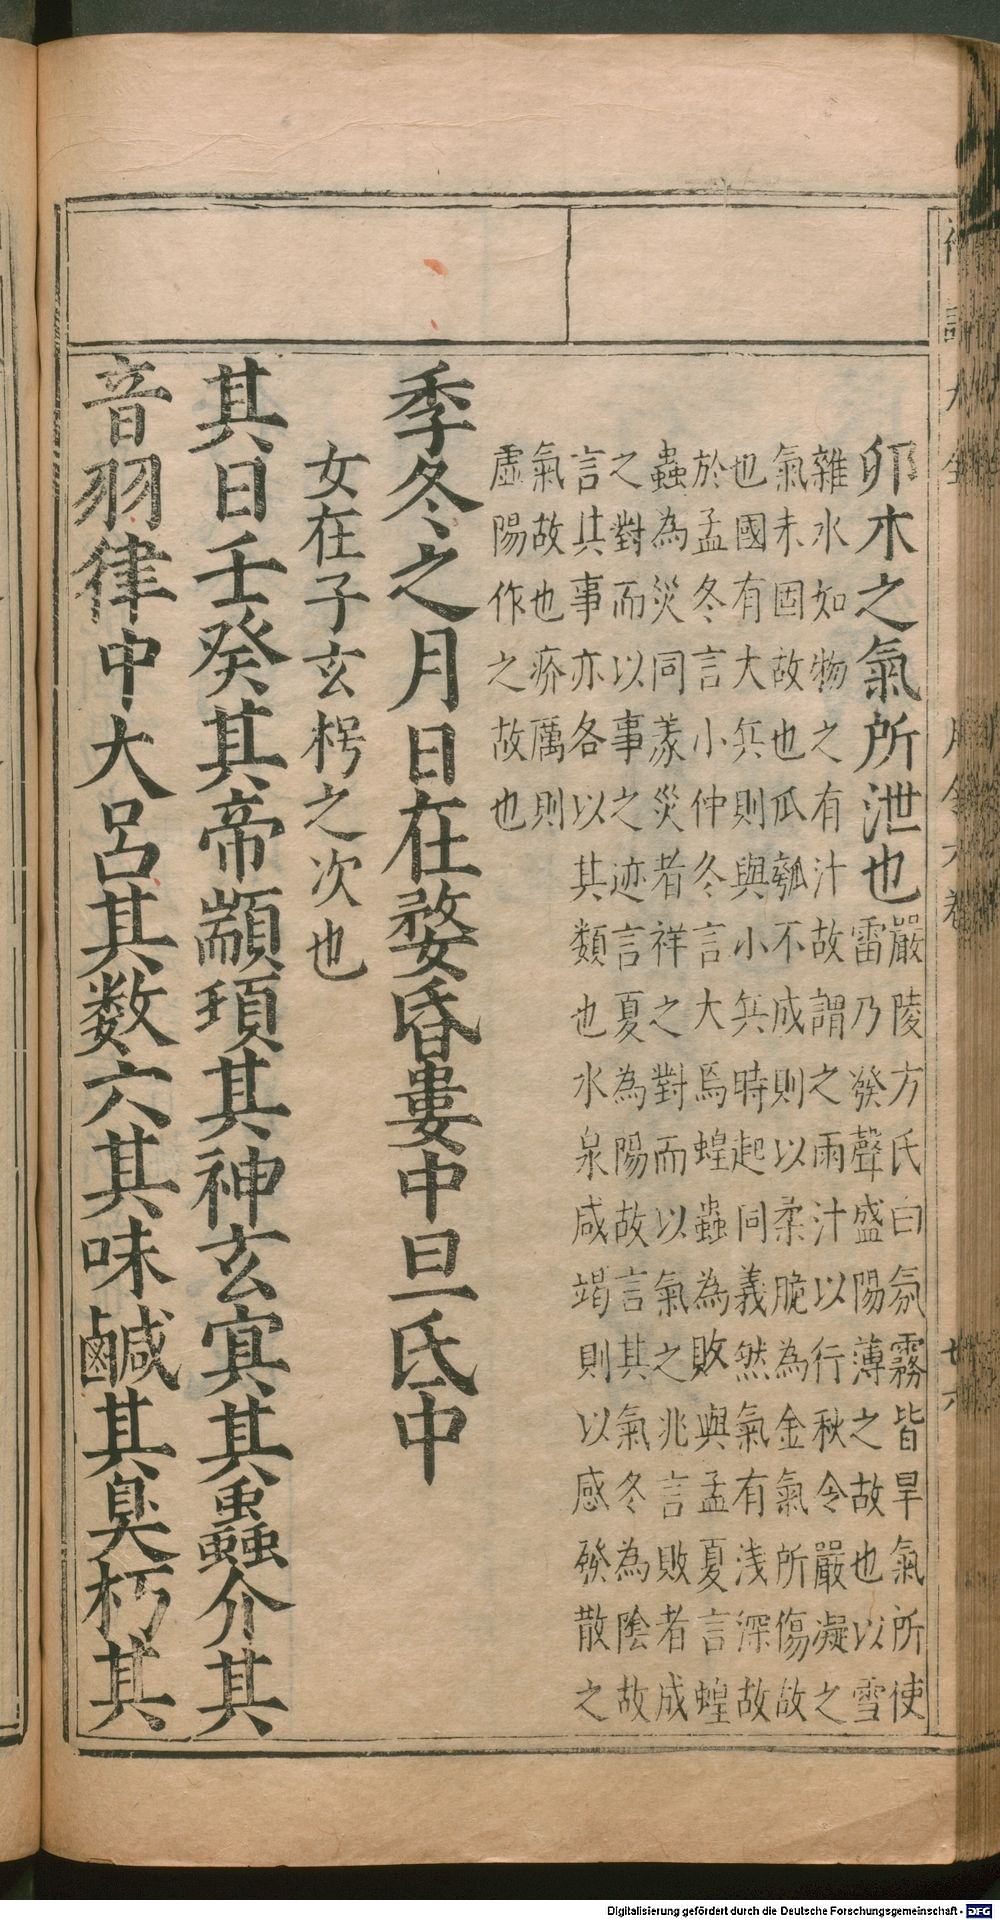 卯木之氣所泄也嚴陵方氏曰氛霧皆旱氣所使
雷乃發聲盛陽薄之故也以雪
雜水如物之有汁故謂之雨汁以行秋令嚴凝之
氣未固故也瓜瓠不成則以柔脆為金氣所傷故
也國有大兵則與小兵時起同義然氣有浅深故
於孟冬言小仲冬言大焉蝗蟲為敗與孟夏言蝗
蟲為災同義災者祥之對而以氣之兆言敗者成
之對而以事之迹言夏為陽故言其氣冬為陰故
言其事亦各以其類也水泉咸竭則以感發散之
氣故也疥厲則
虛陽作之故也
季冬之月日在婺昏婁中旦氐中
女在子玄枵之次也
其日壬癸其帝顓頊其神玄㝠其蟲介其
音羽律中大呂其数六其味鹹其臭朽其
Digitalisierung gefördert durch die Deutsche Forschungsgemeinschaft - DFG